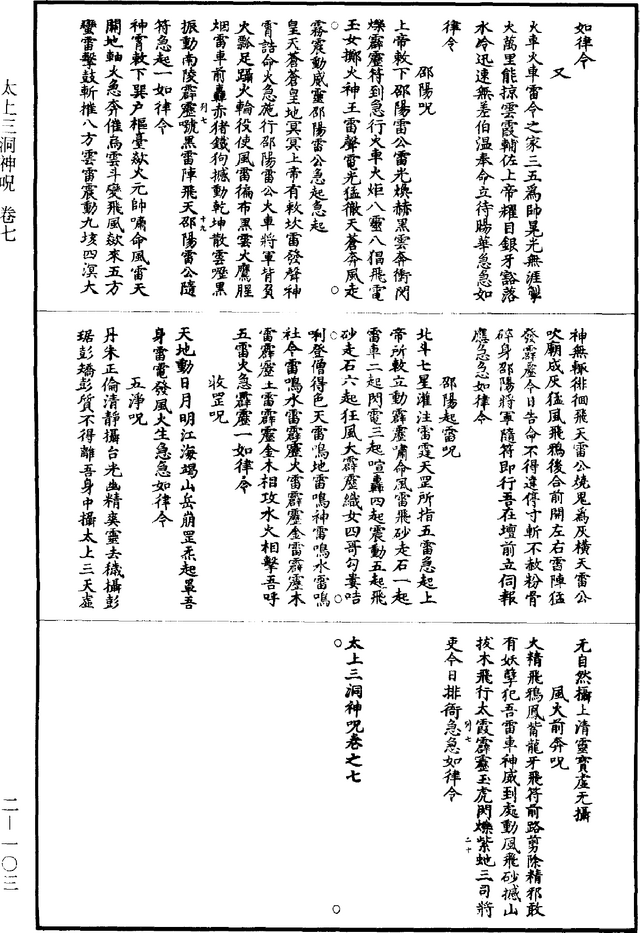 如律令
又
火車火車雷令之家三五為帥晃光無涯掣
火萬里能掠雲霞輔佐上帝耀目銀牙豁落
水冷迅速無差伯溫奉命立待賜華急急如
律令
邵陽呪
上帝敕下邵陽雷公雷光煥赫黑雲奔衝閃
爍霹靂符到急行火車火炬八靈八猖飛電
玉女擲火神王雷聲電光猛徹天蒼奔風走
霧震動威靈邵陽雷公急起急起
皇天蒼蒼皇地冥冥上帝有敕坎雷發聲神
霄誥命火急施行邵陽雷公火車將軍背負
火瓢足躡火輪役使風雷徧布黑雲火鷹腥
烟雷車前轟赤猪鐵狗撼動乾坤散雲噀黑
振動南陵霹靂號黑雷陣飛天邵陽雷公隨
列七 十九
符急起一如律令
神霄敕下巽户樞臺歘火元帥嘯命風雷天
關地軸火急奔催烏雲斗變飛風歘來五方
蠻雷擊鼓斬摧八方雲雷震動九垓四溟大
神無輒徘徊飛天雷公燒鬼為灰橫天雷公
吹廟成灰猛風飛鴉後合前開左右雷陣猛
發霹靂今日告命不得違停寸斬不赦粉骨
碎身邵陽將軍隨符即行吾在壇前立伺報
應急急如律令
邵陽起雷呪
北斗七星灌注雷霆天罡所指五雷急起上
帝所敕立動霹靂嘯命風雷飛砂走石一起
雷車二起閃電三起喧轟四起震動五起飛
砂走石六起狂風大霹靂織女四哥勾婁咭
唎登僧得色天雷鳴地雷鳴神雷鳴水雷鳴
社令雷鳴水雷霹靂火雷霹靂金雷霹靂木
雷霹靂土雷霹靂金木相攻水火相擊吾呼
五雷火急霹靂一如律令
收罡呪
天地動日月明江海竭山岳崩罡炁起罩吾
身雷電發風火生急急如律令
五淨呪
丹朱正倫清靜攝台光幽精爽靈去穢攝彭
琚彭矯彭質不得離吾身中攝太上三天虛
无自然攝上清靈寶虛无攝
風火前奔呪
大精飛鴉鳳觜龍牙飛符前路剪除精邪敢
有妖孽犯吾雷車神威到處動風飛砂撼山
拔木飛行太霞霹靂玉虎閃爍紫虵三司將
列七 二十
吏今日排衙急急如律令
太上三洞神呪卷之七
太上三洞神呪 卷七
二—一〇三